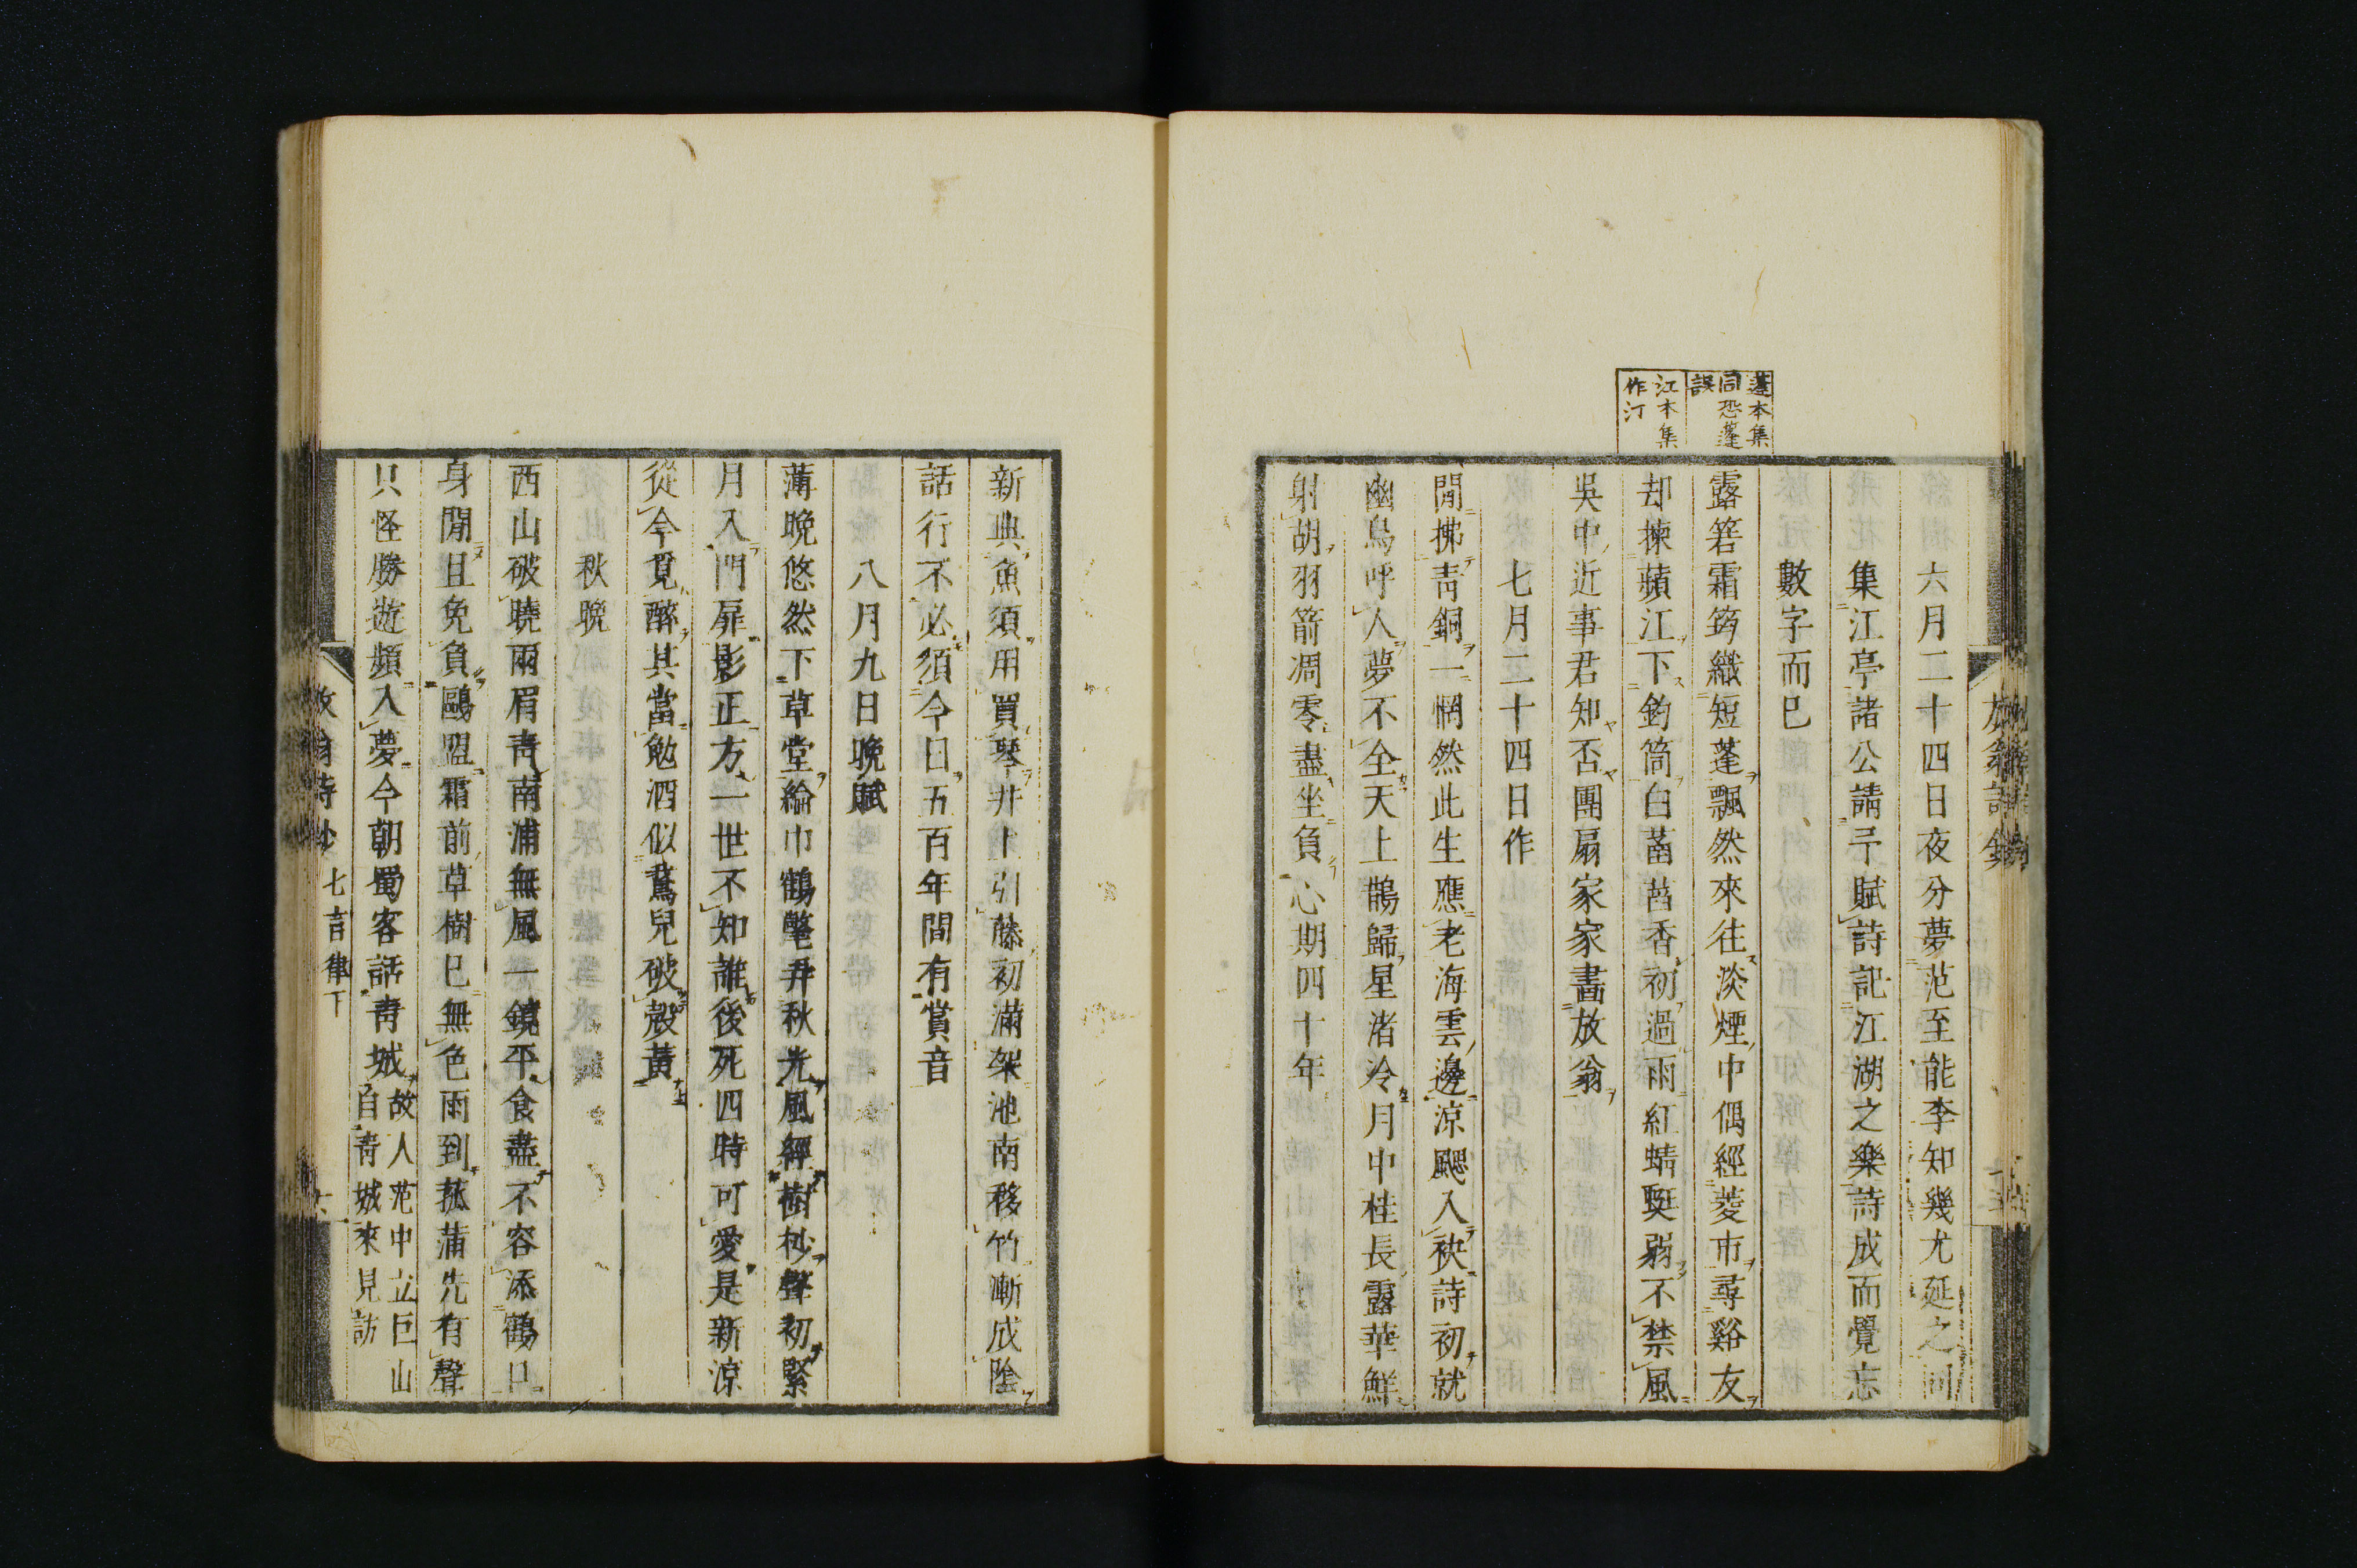 蓬本集
同恐蓬
誤
江本集
作汀
六月二十四日夜分夢范至能李知幾尤延之同
集江亭諸公請予賦詩記江湖之樂詩成而覺忘
數字而已
露箬霜筠織短蓬飄然來往淡煙中偶經菱市尋谿友
却揀蘋江下釣筒白菡萏香初過雨紅蜻蜓弱不禁風
吳中近事君知否團扇家家畫放翁
七月二十四日作
閒拂青銅一惘然此生應老海雲邊涼颸入袂詩初就
幽鳥呼人夢不全天上鵲歸星渚冷月中桂長露華鮮
射胡羽箭凋零盡坐負心期四十年
新典魚須用買琴井上引藤初滿架池南移竹漸成陰
話行不必須今日五百年間有賞音
八月九日晚賦
薄晚悠然下草堂綸巾鶴氅弄秋光風經樹杪聲初緊
月入門扉影正方一世不知誰後死四時可愛是新涼
從今覓醉其當勉酒似鵞兒破殼黃
秋晚
西山破曉雨眉青南浦無風一鏡平食盡不容添鶴口
身閒且免負鷗盟霜前草樹已無色雨到菰蒲先有聲
只怪勝遊頻入夢今朝蜀客話青城
故人范中立巨山
自青城來見訪
七言律下
六